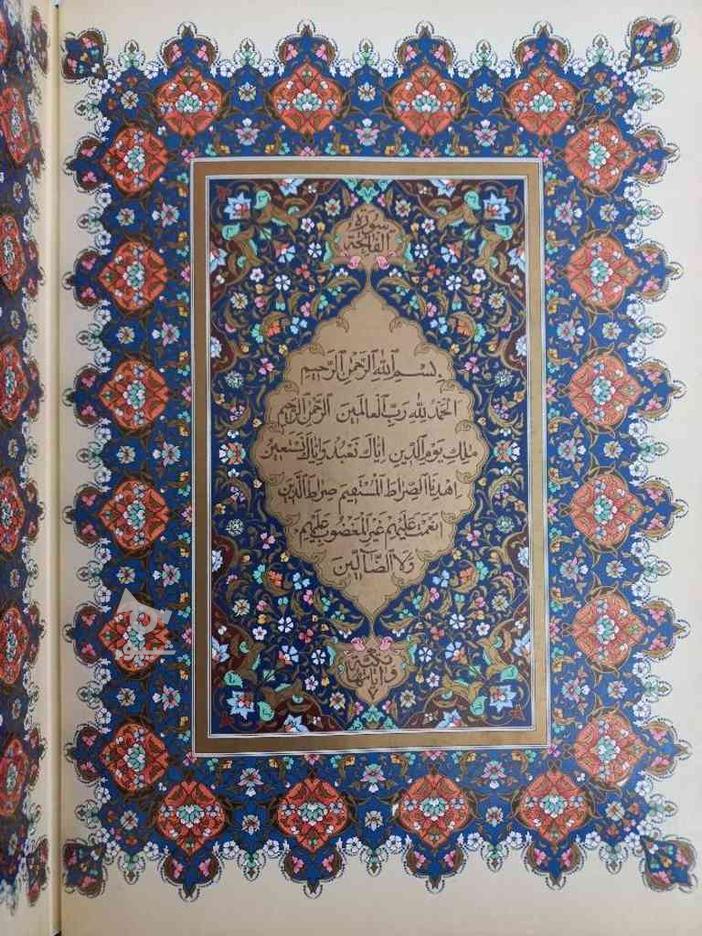 سورة
الفاتحة
بسم الله الرحمن الرحيم
الحمد لله رب العالمين الرحمن الرحيم
ملك يوم الدين اياك نعبد واياك نستعين
اهدنا الصراط المستقيم صراط الذين
انعمت عليهم غير المغضوب عليهم
ولا الضآلين
مكية
وآياتها ٧